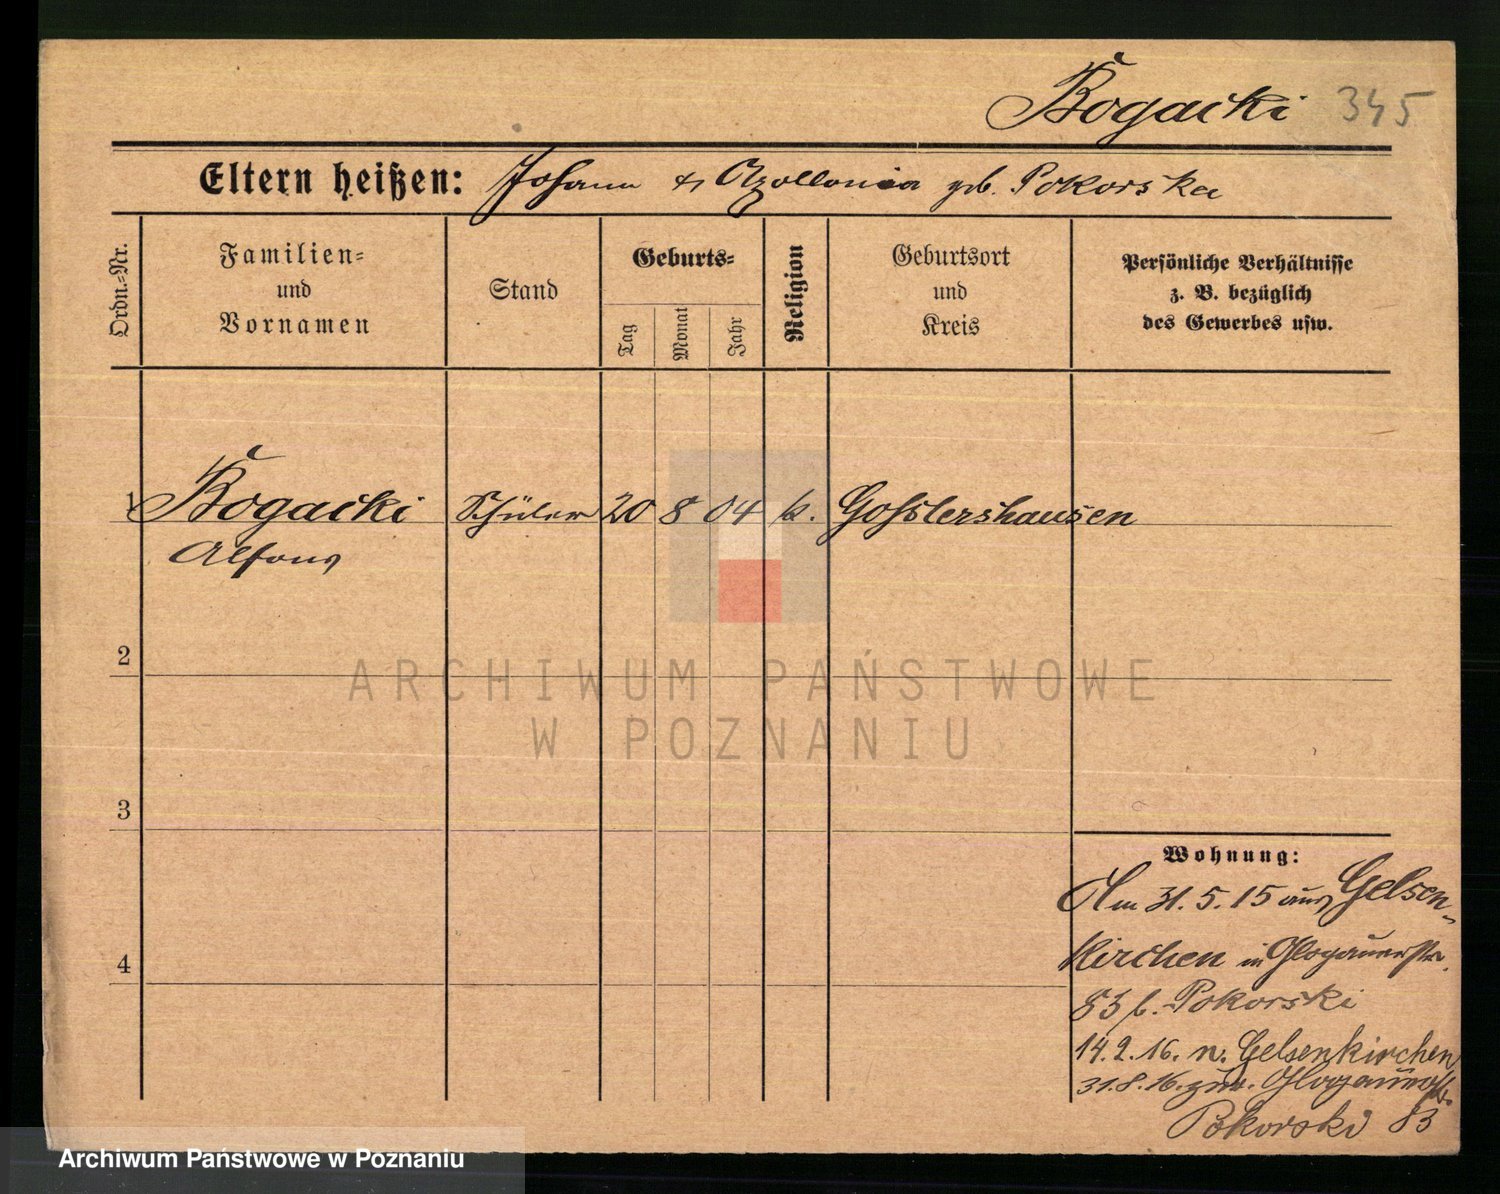 Bogacki 345
Eltern heißen: Johann & Apollonia geb. Pokorska
Ordn.-Nr.
Familien-
und
Vornamen
Stand
Geburts-
Tag
Monat
Jahr
Religion
Geburtsort
und
Kreis
Persönliche Verhältnisse
z. B. bezüglich
des Gewerbes usw.
1 Bogacki Schüler 20 8 04 k. Gosslershausen
Alfons
2
ARCHIWUM PAŃSTWOWE
W POZNANIU
3
Wohnung:
Am 31.5.15 aus Gelsen-
kirchen in Glogauerstr.
4
83 b. Pokorski
14.2.16. n. Gelsenkirchen
31.8.16. zur. Glogauerstr.
Pokorski 83
Archiwum Państwowe w Poznaniu